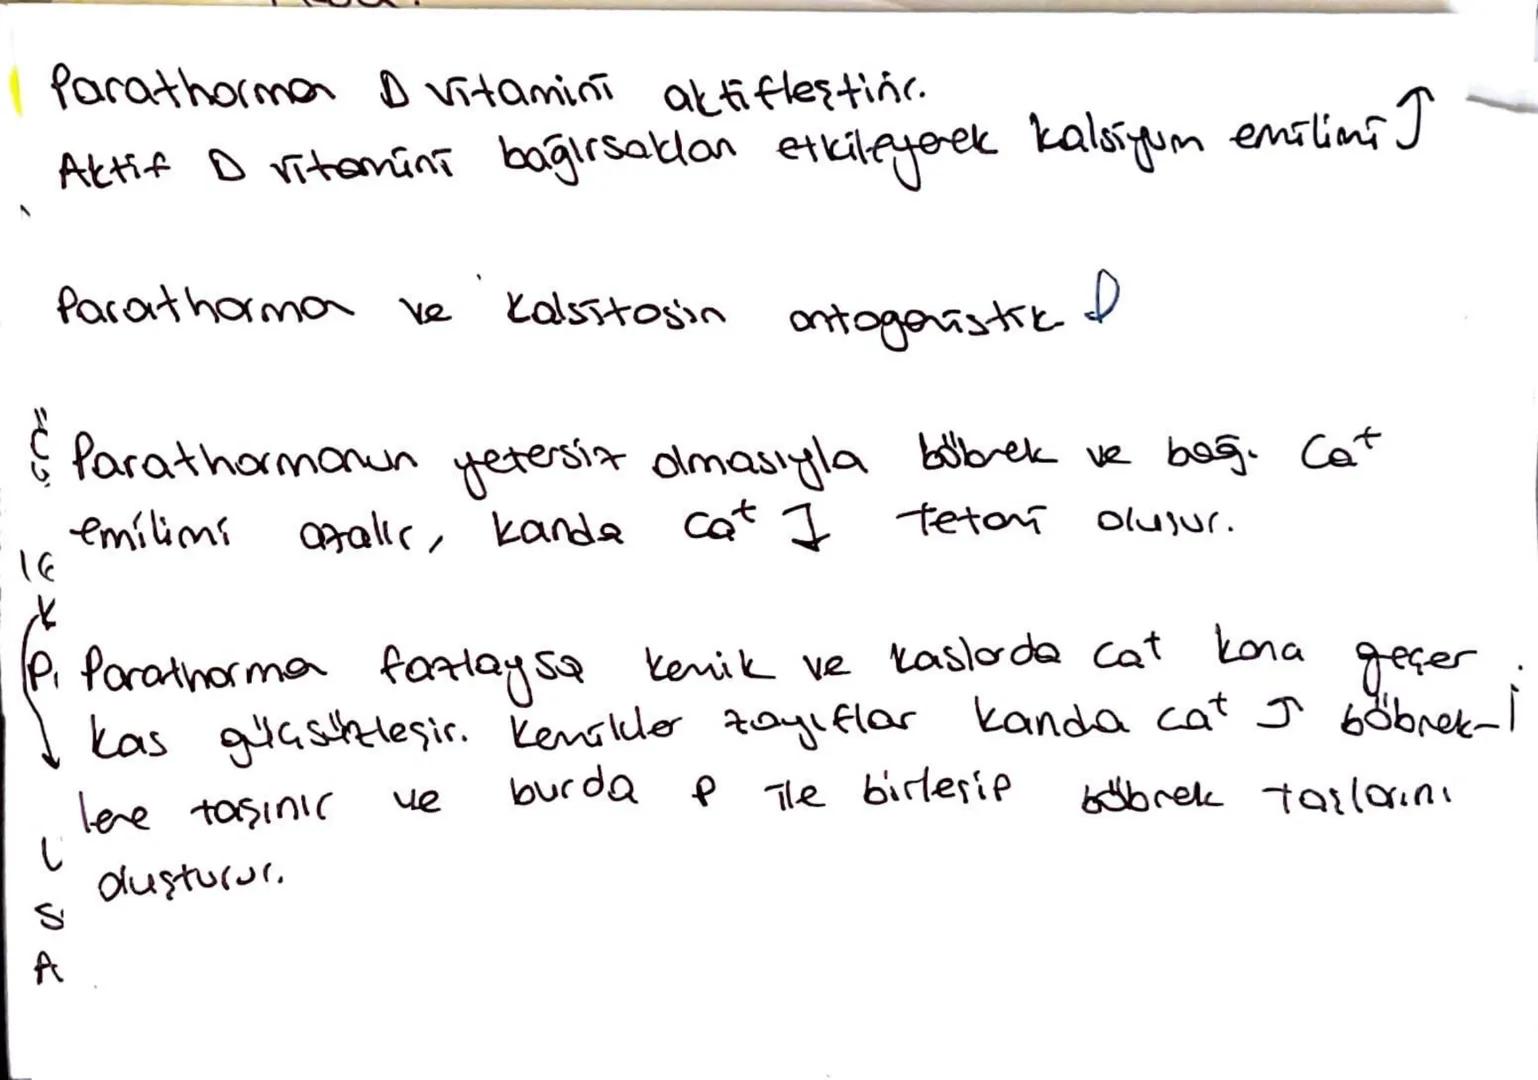 Parathormon D vitamini aktifleştirir.
Aktif D vitamini bağırsakları etkileyerek kalsiyum emilimi ↑
Parathormon ve kalsitosin antagonistik D
Parathormonun yetersiz olmasıyla böbrek ve bağ. Ca+
emilimi azalır, kanda Ca+ ↓ tetani oluşur.
Parathormon fazlaysa kemik ve kaslarda Ca+ kana geçer.
kas güçsüzleşir. Kemikler zayıflar kanda Ca+ ↑ böbrek-
lere taşınır ve burda P ile birleşip böbrek taşlarını
oluşturur.
L
S
A